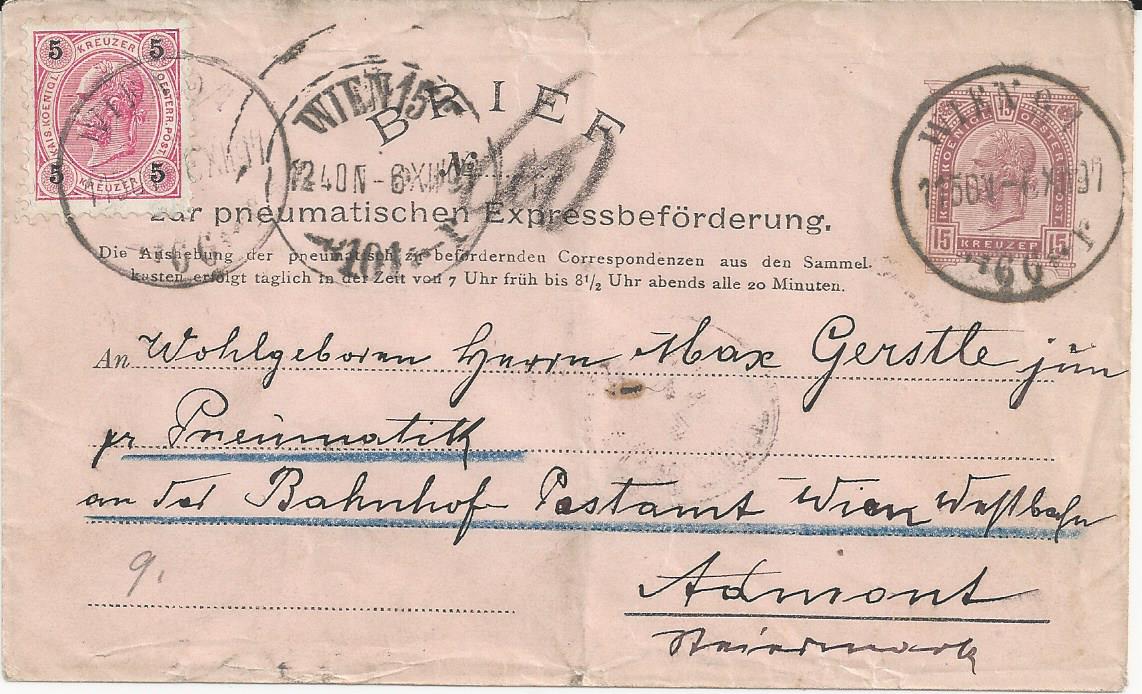 5 KREUZER 5
KAIS. KOENIGL. OESTERR. POST
5 KREUZER 5
WIEN
WIEN 15
12 40 N - 6 XII 97
101
BRIEF
№
WIEN
11 50 V - 6 XII 97
66
KOENIGL. OESTERR. POST
15 KREUZER 15
Zur pneumatischen Expressbeförderung.
Die Aushebung der pneumatisch zu befördernden Correspondenzen aus den Sammel-
kasten erfolgt täglich in der Zeit von 7 Uhr früh bis 8½ Uhr abends alle 20 Minuten.
An Wohlgeboren Herrn Max Gerstle jun
pr Pneumatik
an das Bahnhof Postamt Wien Westbahn
9.
Admont
Steiermark